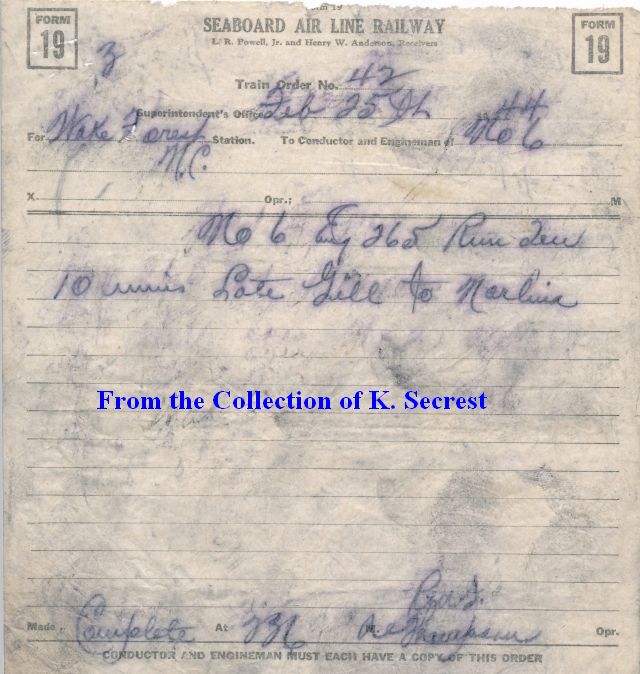 Form 19
FORM 19
SEABOARD AIR LINE RAILWAY
FORM 19
L. R. Powell, Jr. and Henry W. Anderson, Receivers
3
Train Order No. 42
Superintendent's Office Feb 25th 1944
For Wake Forest Station. To Conductor and Engineman of No 6
N.C.
X Opr.; M
No 6 Eng 265 Run Ten
10 mins Late Gill to Norlina
From the Collection of K. Secrest
Made Complete At 236 M. Thompson Opr.
CONDUCTOR AND ENGINEMAN MUST EACH HAVE A COPY OF THIS ORDER